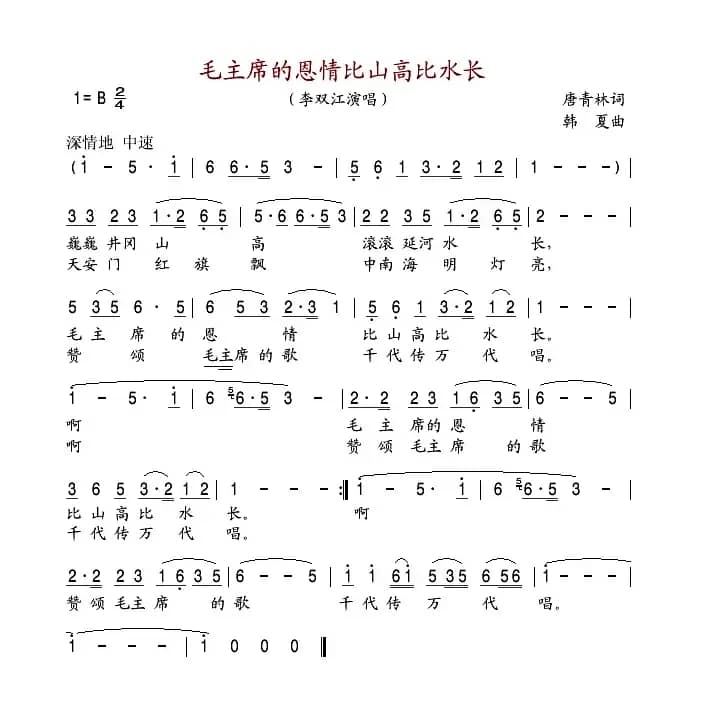 毛主席的恩情比山高比水长
1=B 2/4 （李双江演唱） 唐青林词
韩 夏曲
深情地 中速
(1 - 5· 1 | 6 6·5 3 - | 5 6 1 3·2 12 | 1 - - -) |
33 23 1·2 65 | 5·6 6·5 3 | 22 35 1·2 65 | 2 - - - |
巍巍 井冈 山 高 滚滚 延河 水 长，
天安 门 红 旗 飘 中南 海 明 灯 亮，
5 35 6· 5 | 6 53 2·3 1 | 5 6 1 3·2 12 | 1 - - - |
毛 主 席 的 恩 情 比 山 高 比 水 长。
赞 颂 毛主席 的 歌 千 代 传 万 代 唱。
1 - 5· 1 | 6 5 6·5 3 - | 2·2 23 16 35 | 6 - - 5 |
啊 毛 主 席的 恩 情
啊 赞 颂 毛主 席 的 歌
3 6 5 3·2 12 | 1 - - - :‖ 1 - 5· 1 | 6 5 6·5 3 - |
比 山 高 比 水 长。 啊
千 代 传 万 代 唱。
2·2 23 16 35 | 6 - - 5 | 1 1 61 535 6 56 | 1 - - - |
赞颂 毛主 席 的 歌 千 代 传 万 代 唱。
1 - - - | 1 0 0 0 ‖